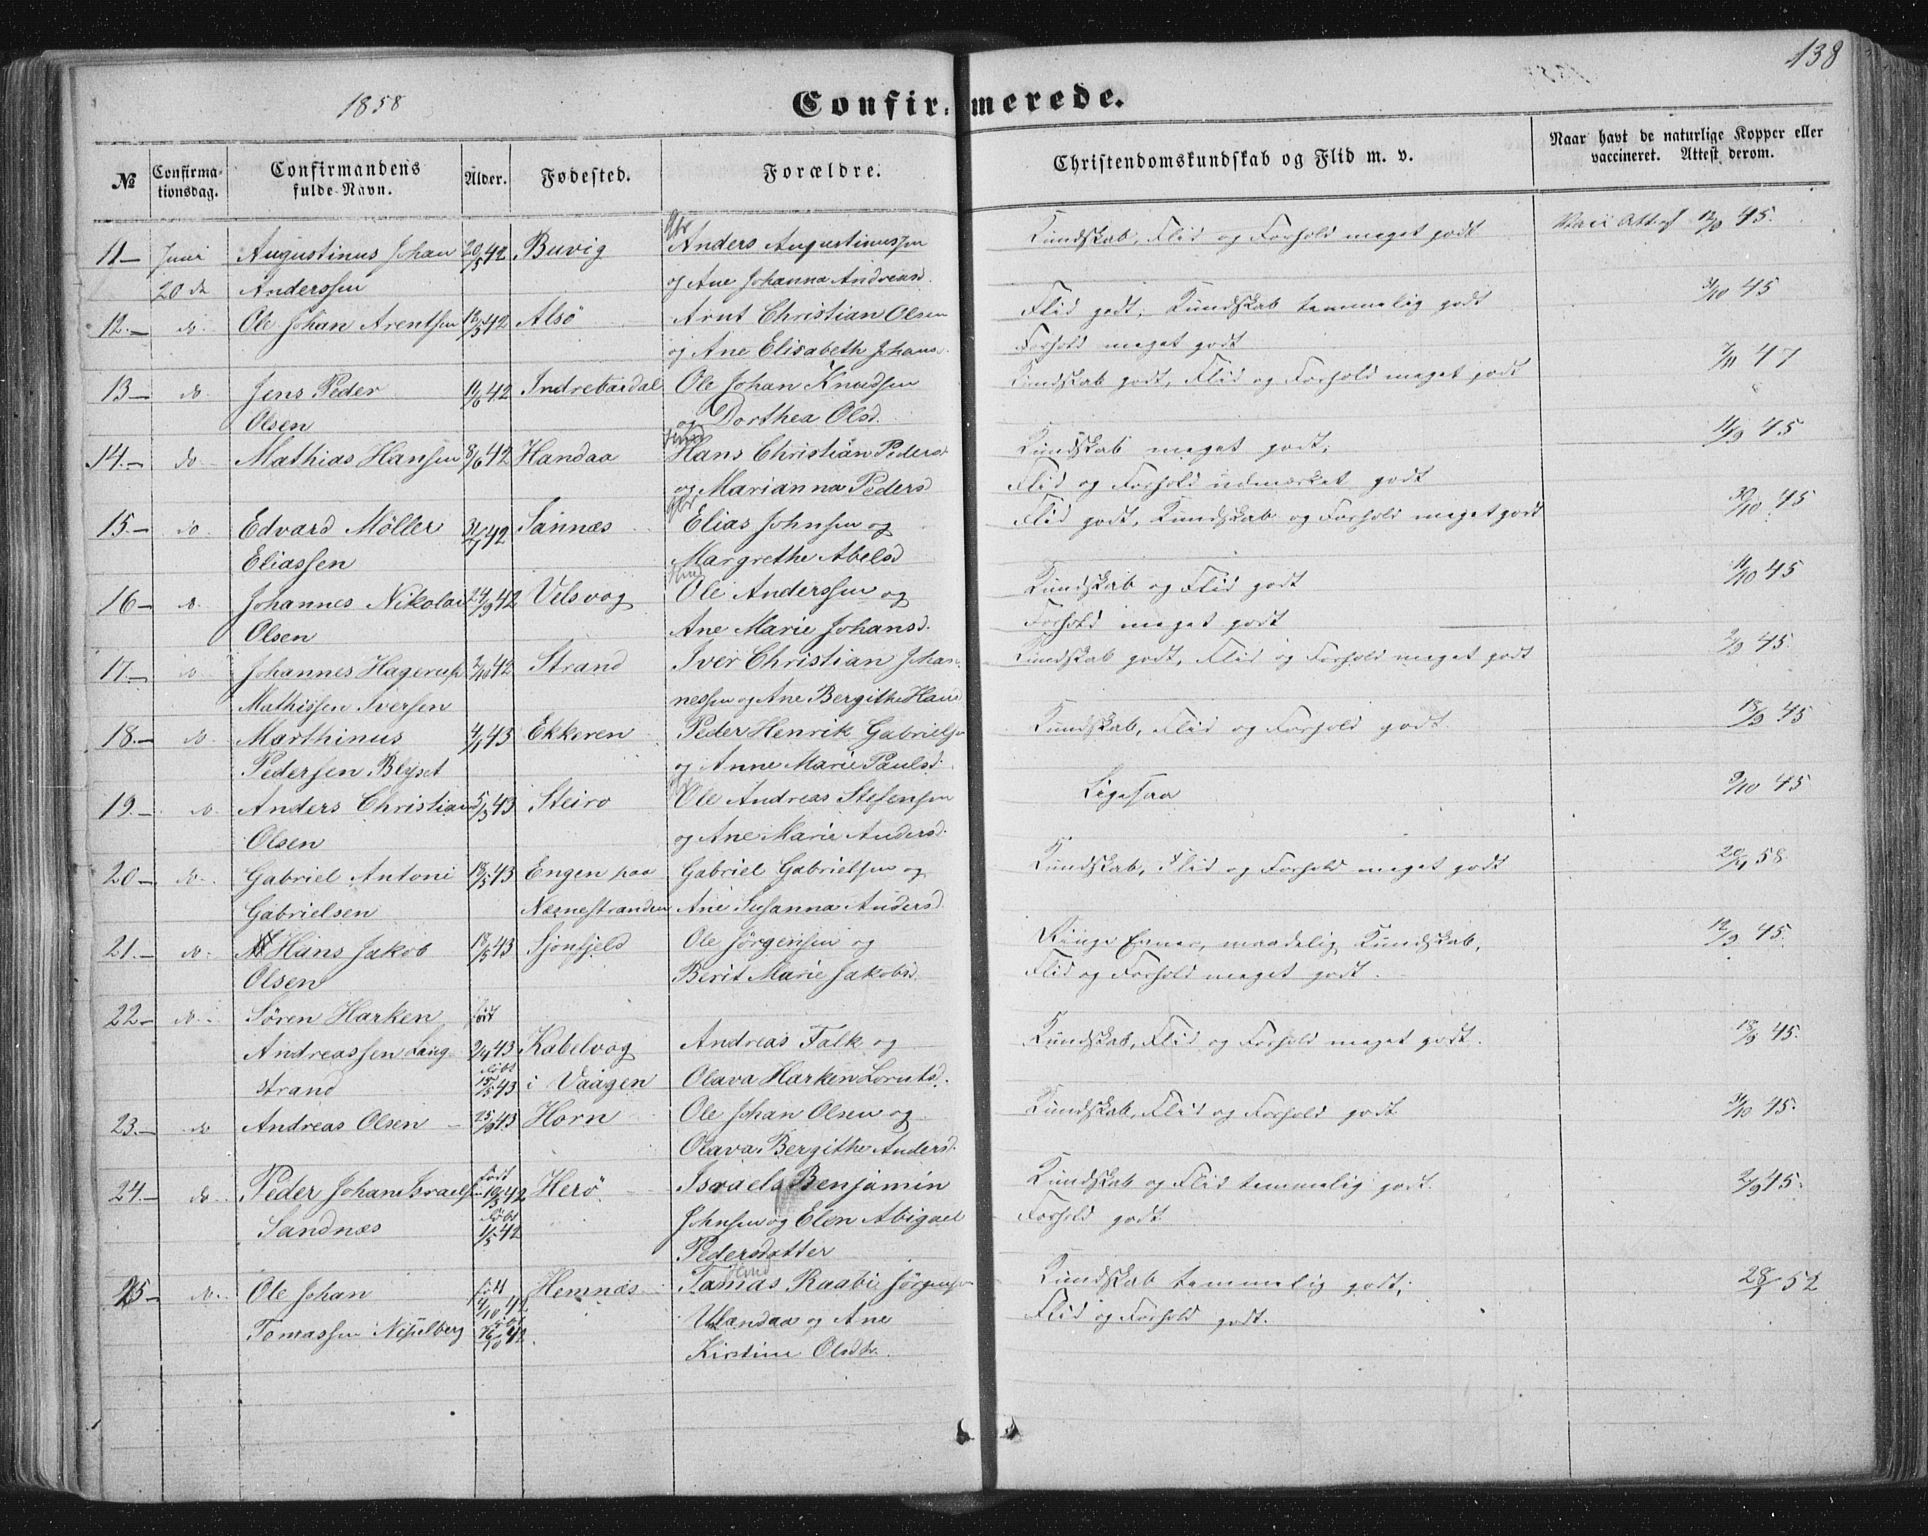 138
1858
Confirmerede.
№ Confirmationsdag. Confirmandens fulde Navn. Alder. Fødested. Forældre. Christendomskundskab og Flid m. v. Naar havt de naturlige Kopper eller vaccineret. Attest derom.
11 – Juni Augustinus Johan 20/5 42 Buvig Gbr Anders Augustinussen Kundskab, Flid og Forhold meget godt Vacc Attest 12/9 45.
20 de Anderssen og Ane Johanna Andreasd.
12. – do Ole Johan Arentsen 12/5 42 Alsö Arnt Christian Olsen Flid godt, Kundskab temmelig godt 3/10 45
og Ane Elisabeth Johans. Forhold meget godt
13 – do. Jens Peder 11/6 42 Indrebardal Ole Johan Knudsen Kundskab godt, Flid og Forhold meget godt 7/11 47
Olsen og Dorthea Olsd.
14. – do – Mathias Hansen 8/6 42 Handaa Huusm Hans Christian Peders Kundskab meget godt, 11/9 45
og Marianna Peders Flid og Forhold udmærket godt
15 – do. Edvard Möller 31/7 42 Sannæs Gbr Elias Johnsen og Flid godt, Kundskab og Forhold meget godt 30/10 45
Eliassen Margrethe Abelsd
16 – do. Johannes Nikolai 24/9 42 Velsvog Ole Anderssen og Kundskab og Flid godt 11/10 45
Olsen Ane Marie Johansd. Forhold meget godt
17. – do Johannes Hagerup 2/10 42 Strand Iver Christian Johan- Kundskab godt, Flid og Forhold meget godt 2/9 45.
Mathissen Iversen nessen og Ane Bergithe Hansd
18. – do. Marthinus 4/1 43 Ekkeren Peder Henrik Gabrielsen Kundskab, Flid og Forhold godt. 18/9 45
Pedersen Blyset og Anne Marie Paulsd.
19. – do. Anders Christian 5/3 43 Steiro Ole Andreas Stefensen Ligesaa 9/10 45
Olsen og Ane Marie Andersd.
20 – do. Gabriel Antoni 18/3 43 Engen paa Gabriel Gabrielsen og Kundskab, Flid og Forhold meget godt 20/4 58
Gabrielsen Næsnestranden Ane Susanna Andersd.
21. – do. Hans Jakob 18/5 43 Sjonfjeld Ole Jörgensen og Ringe Evner, maadelig Kundskab, 12/9 45.
Olsen Berit Marie Jakobsd. Flid og Forhold meget godt.
22 – do – Sören Harken födt
Andreassen Lang- 2/4 43 Kabelvog Andreas Falk og Kundskab, Flid og Forhold meget godt. 18/9 45.
strand döbt 15/5 43 i Vaagen Olava Harken Lorntsd.
23. – do Andreas Olsen – 25/9 43 Horn Ole Johan Olsen og Kundskab, Flid og Forhold godt 31/10 45.
Olava Bergithe Andersd.
24. – do. Peder Johan Israels födt 19/3 42 Herö Israels Benjamin Kundskab og Flid temmelig godt. 2/9 45.
Sandnæs döbt 1/5 42 Johnsen og Elen Abigael Forhold godt
Pedersdatter
25 – do. Ole Johan födt 4/10 42 Hemnæs Tomas Raabie Jörgensen Kundskab temmelig godt; 28/1 52
Tomassen Nisselberg döbt 16/10 42. Ulandaa og Ane Flid og Forhold godt.
Kirstine Olsdtr.